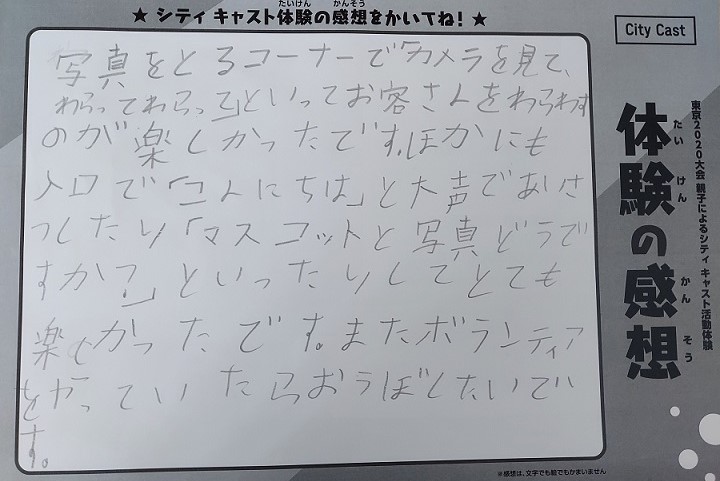 ★ シティ キャスト体験の感想をかいてね！ ★
たいけん かんそう
City Cast
写真をとるコーナーで「カメラを見て、
わらってわらって」といってお客さんをわらわす
のが楽しかったです。ほかにも
入口で「こんにちは」と大声であいさ
つしたり「マスコットと写真どうで
すか？」といったりしてとても
楽しかったです。またボランティア
をやっていたらおうぼしたいで
す。
東京2020大会 親子によるシティ キャスト活動体験
体験の感想
たい けん かん そう
※感想は、文字でも絵でもかまいません